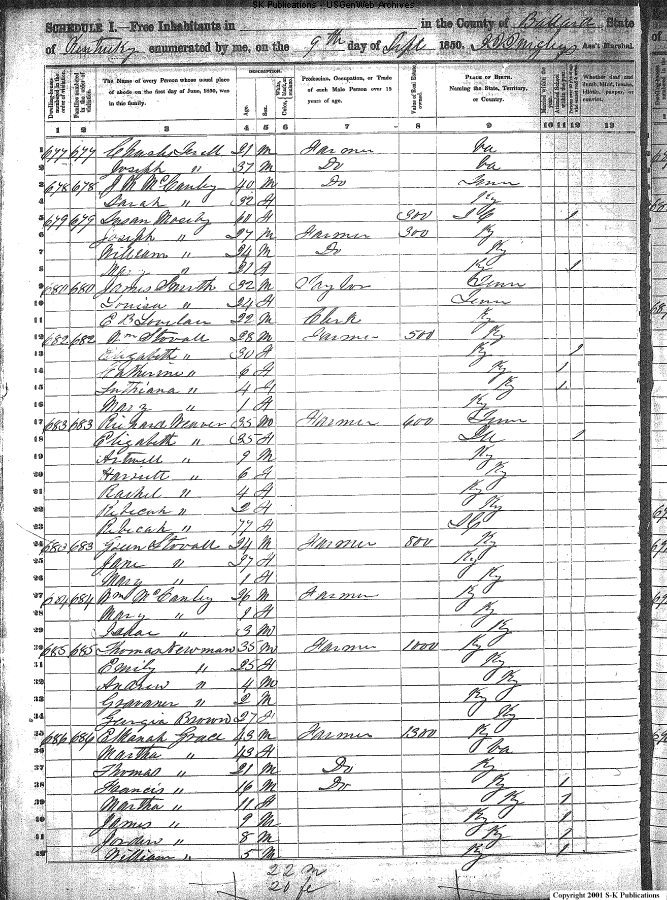 SK Publications - USGenWeb Archives
SCHEDULE I.—Free Inhabitants in in the County of Ballard State
of Kentucky enumerated by me, on the 9th day of Sept 1850. Ass't Marshal.
DESCRIPTION.
Dwelling-houses numbered in the order of visitation.
Families numbered in the order of visitation.
The Name of every Person whose usual place of abode on the first day of June, 1850, was in this family.
Age.
Sex.
Profession, Occupation, or Trade of each Male Person over 15 years of age.
Value of Real Estate owned.
PLACE OF BIRTH. Naming the State, Territory, or Country.
Whether deaf and dumb, blind, insane, idiotic, pauper, or convict.
1 2 3 4 5 6 7 8 9 10 11 12 13
1 677 677 21 M Farmer Va
2 Joseph " 37 M Do Va
3 678 678 J M McCanley 40 M Do Tenn
4 Sarah " 32 f Ky
5 679 679 Susan Mosely 60 f 300 1
6 Joseph " 27 M Farmer 300 Ky
7 William " 24 M Do Ky
8 Mary " 21 f Ky 1
9 680 680 James Smith 32 M Taylor Tenn
10 Louisa " 24 f Tenn
11 E B Lovelan 22 M Clerk Ky
12 682 682 Wm Stovall 28 M Farmer 500 Ky
13 Elizabeth " 30 f Ky 1
14 Catherine " 6 f Ky 1
15 " 4 f Ky 1
16 Mary " 1 f Ky
17 683 683 Richard Weaver 35 M Farmer 600 Tenn
18 Elizabeth " 35 f Ill 1
19 " 9 M Ky
20 " 6 f Ky
21 Rachel " 4 f Ky
22 Rebicah " 2 f Ky
23 Rebicah " 77 f
24 683 683 Green Stovall 24 M Farmer 800 Ky
25 Jane " 27 f Ky
26 Mary " 1 f Ky
27 684 684 Wm McCanley 26 M Farmer Ky
28 Mary " f Ky
29 Isaac " 3 M Ky
30 685 685 Thomas Newman 35 M Farmer 1000 Ky
31 Emily " 25 f Ky
32 Andrew " 4 M Ky
33 " 2 M Ky
34 Georgia Brown 27 f Ky
35 686 686 Grace 43 M Farmer 1300 Ky
36 Martha " 43 f Va
37 Thomas " 21 M Do Ky
38 Francis " 16 M Do Ky 1
39 Martha " 11 f Ky 1
40 James " 9 M Ky 1
41 Jorden " 8 M Ky 1
42 William " 5 M Ky 1
22 m
20 fe
Copyright 2001 S-K Publications